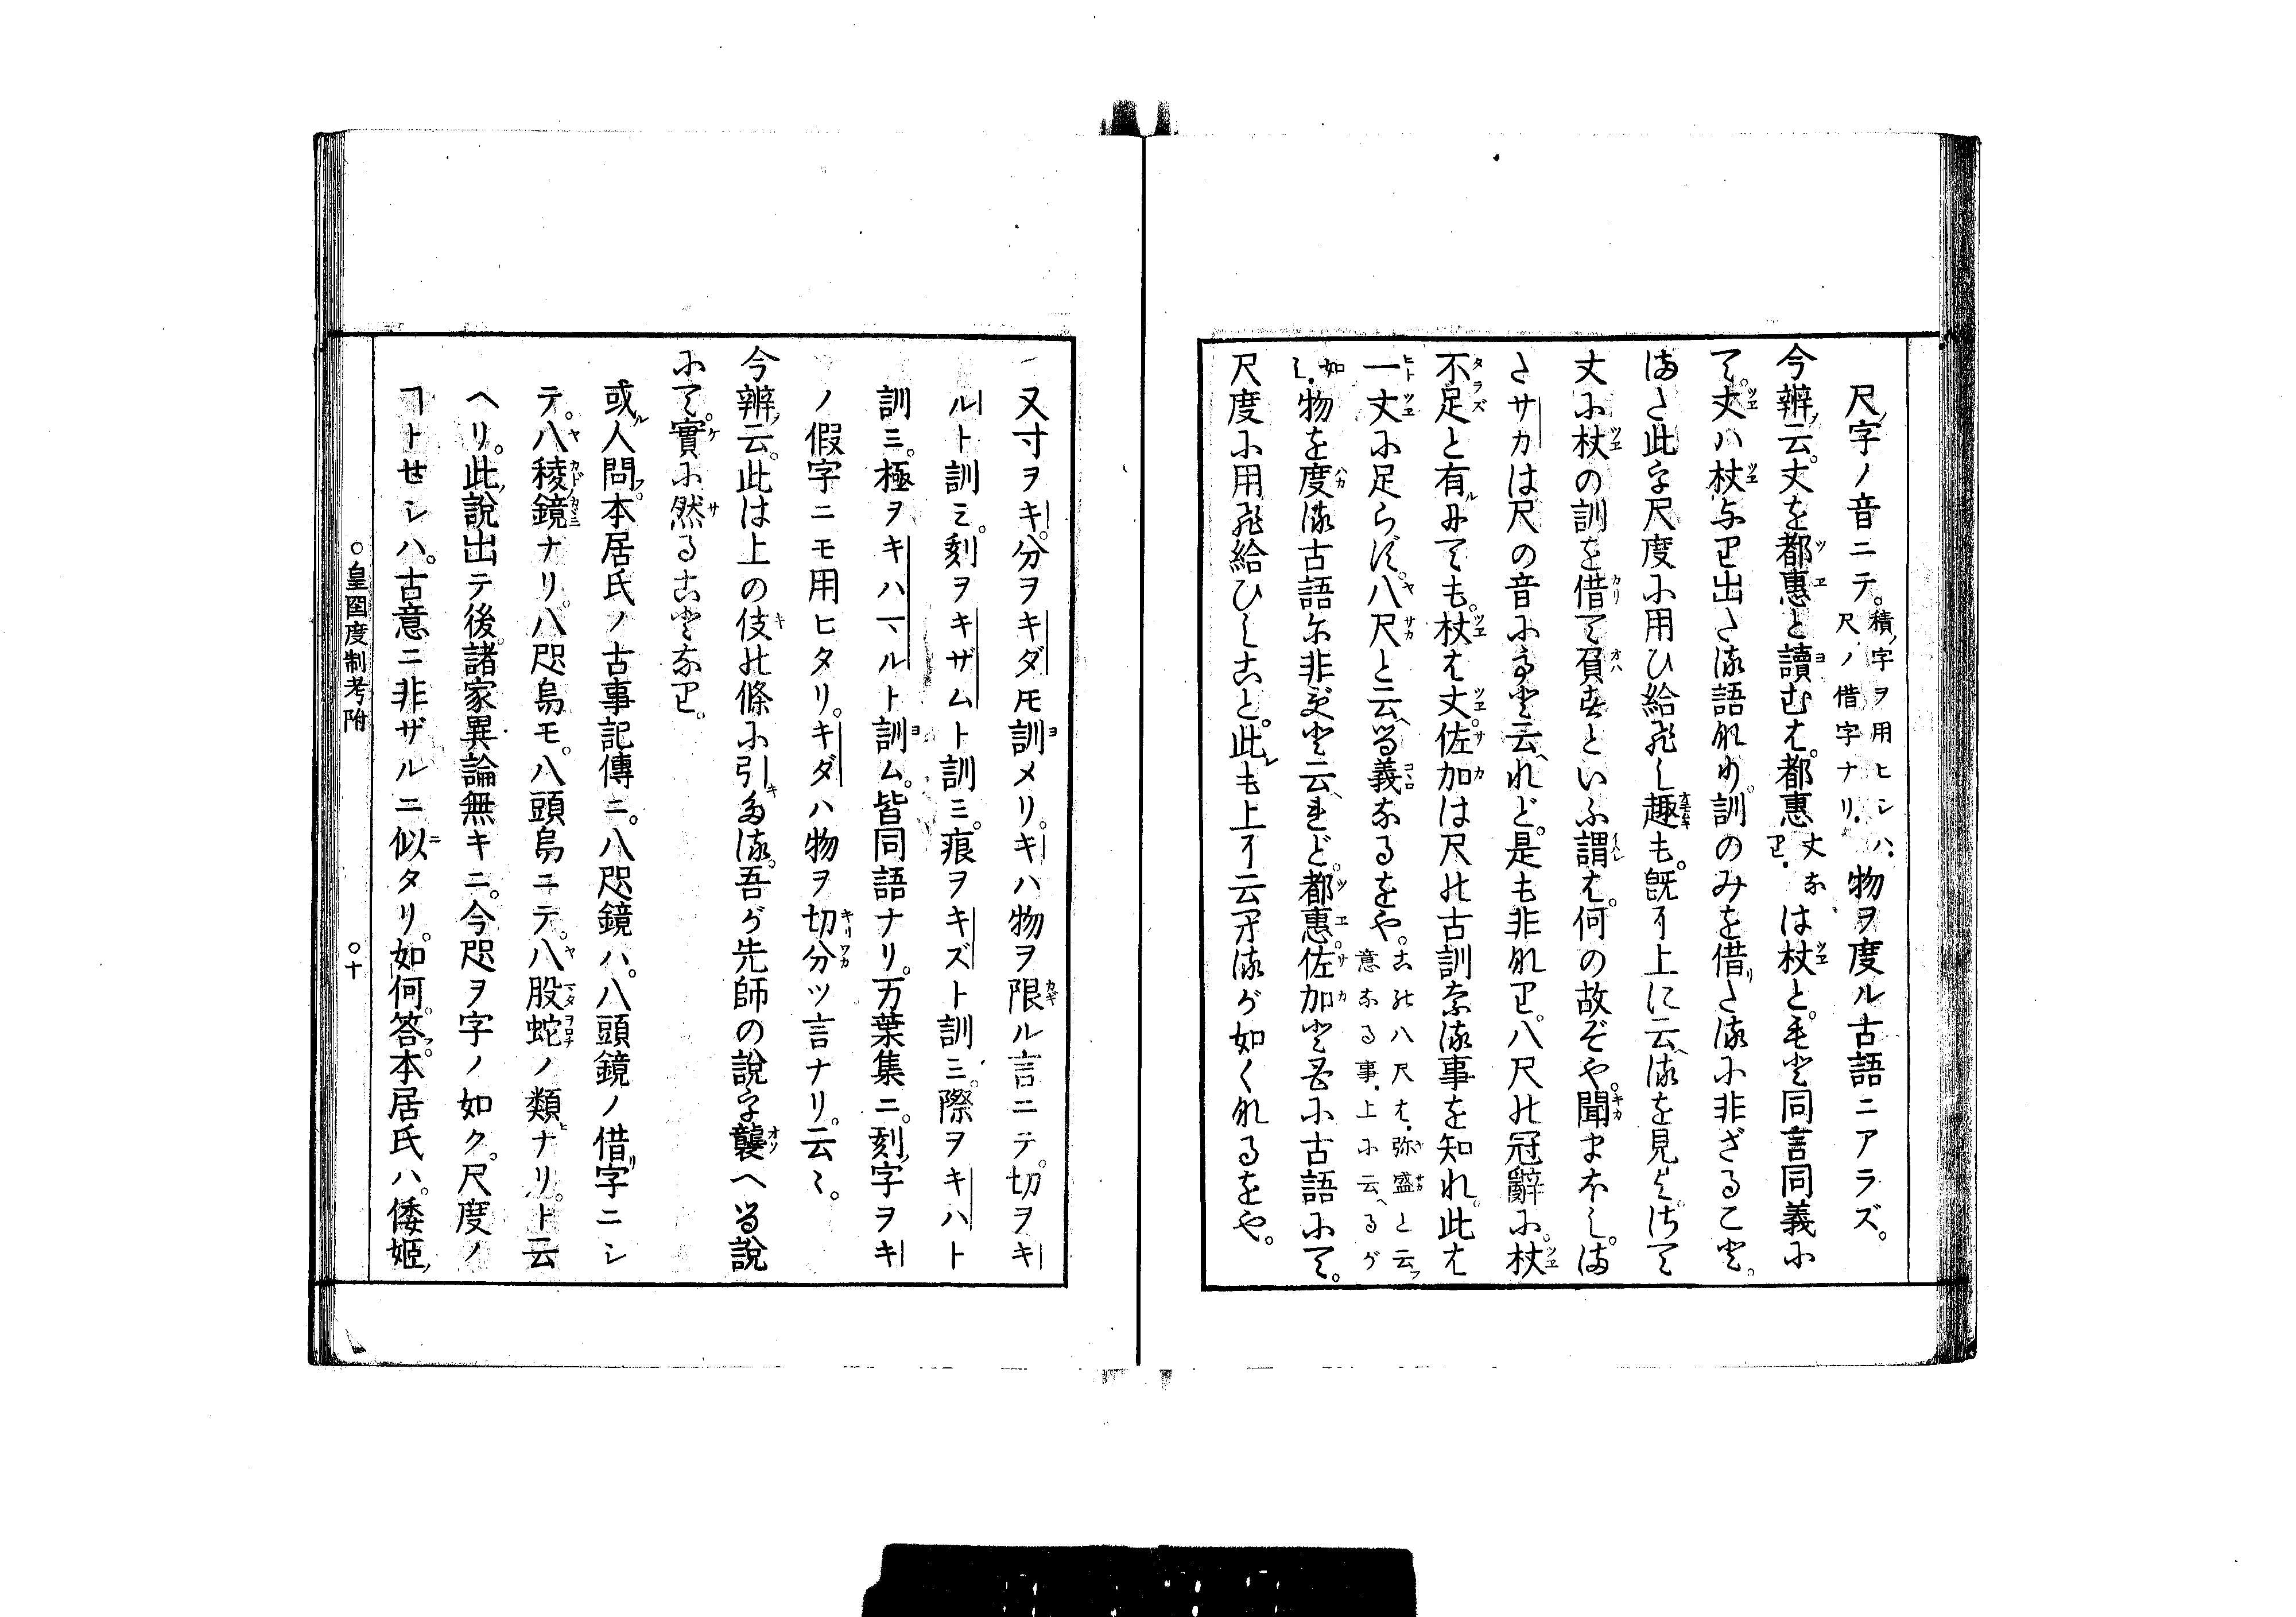 尺ノ字ノ音ニテ。積ノ字ヲ用ヒシハ、尺ノ借字ナリ、物ヲ度ル古語ニアラズ。
今辨ノ云。丈を都惠と讀むは。都惠丈なり、は杖と。毛と同言同義にて
て。丈ハ杖より出たる語なり。訓のみを借りたるに非ざること。
また此字尺度に用ひ給へし趣も。既に上に云へるを見よ。さて
丈に杖の訓を借て負すといふ謂は。何の故ぞや。聞まほし。ま
たサカは尺の音にすと云れど。是も非なり。八尺の冠辭に。杖
不足と有るにても。杖は丈。佐加は尺の古訓なる事を知れ。此は
一丈に足らず。八尺と云へる義なるをや。この八尺は、弥盛と云フ意なる事、上に云へるが
如し、物を度る古語に非ずと云へれど。都惠。佐加と共に古語にて。
尺度に用ひ給ひしこと。此レも上に云るが如くなるをや。
又寸ヲキ。分ヲキダモ訓メリ。キハ物ヲ限ル言ニテ。切ヲキ
ルト訓ミ。刻ヲキザムト訓ミ。痕ヲキズト訓ミ。際ヲキハト
訓ミ。極ヲキハマルト訓ム。皆同語ナリ。万葉集ニ。刻ノ字ヲキ
ノ假字ニモ用ヒタリ。キダハ物ヲ切分ツ言ナリ。云〻。
今辨ノ云。此は上の伎の條に引たる。吾が先師の說を襲へる說
にて。實に然ることなり。
或ル人問フ。本居氏ノ古事記傳ニ。八咫鏡ハ。八頭鏡ノ借リ字ニシ
テ。八稜鏡ナリ。八咫烏モ。八頭烏ニテ。八股蛇ノ類ヒナリ。ト云
ヘリ。此ノ說出テ後。諸家異論無キニ。今咫ヲ字ノ如ク。尺度ノ
ヿトセシハ。古意ニ非ザルニ似タリ。如何。答フ。本居氏ハ。倭姬ノ
○皇國度制考附　○十